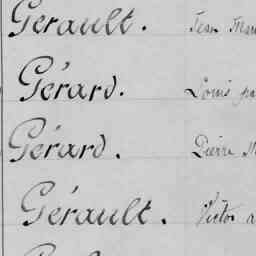 Gérault. Jean
Gérard. Louis
Gérard. Pierre
Gérault. Victor